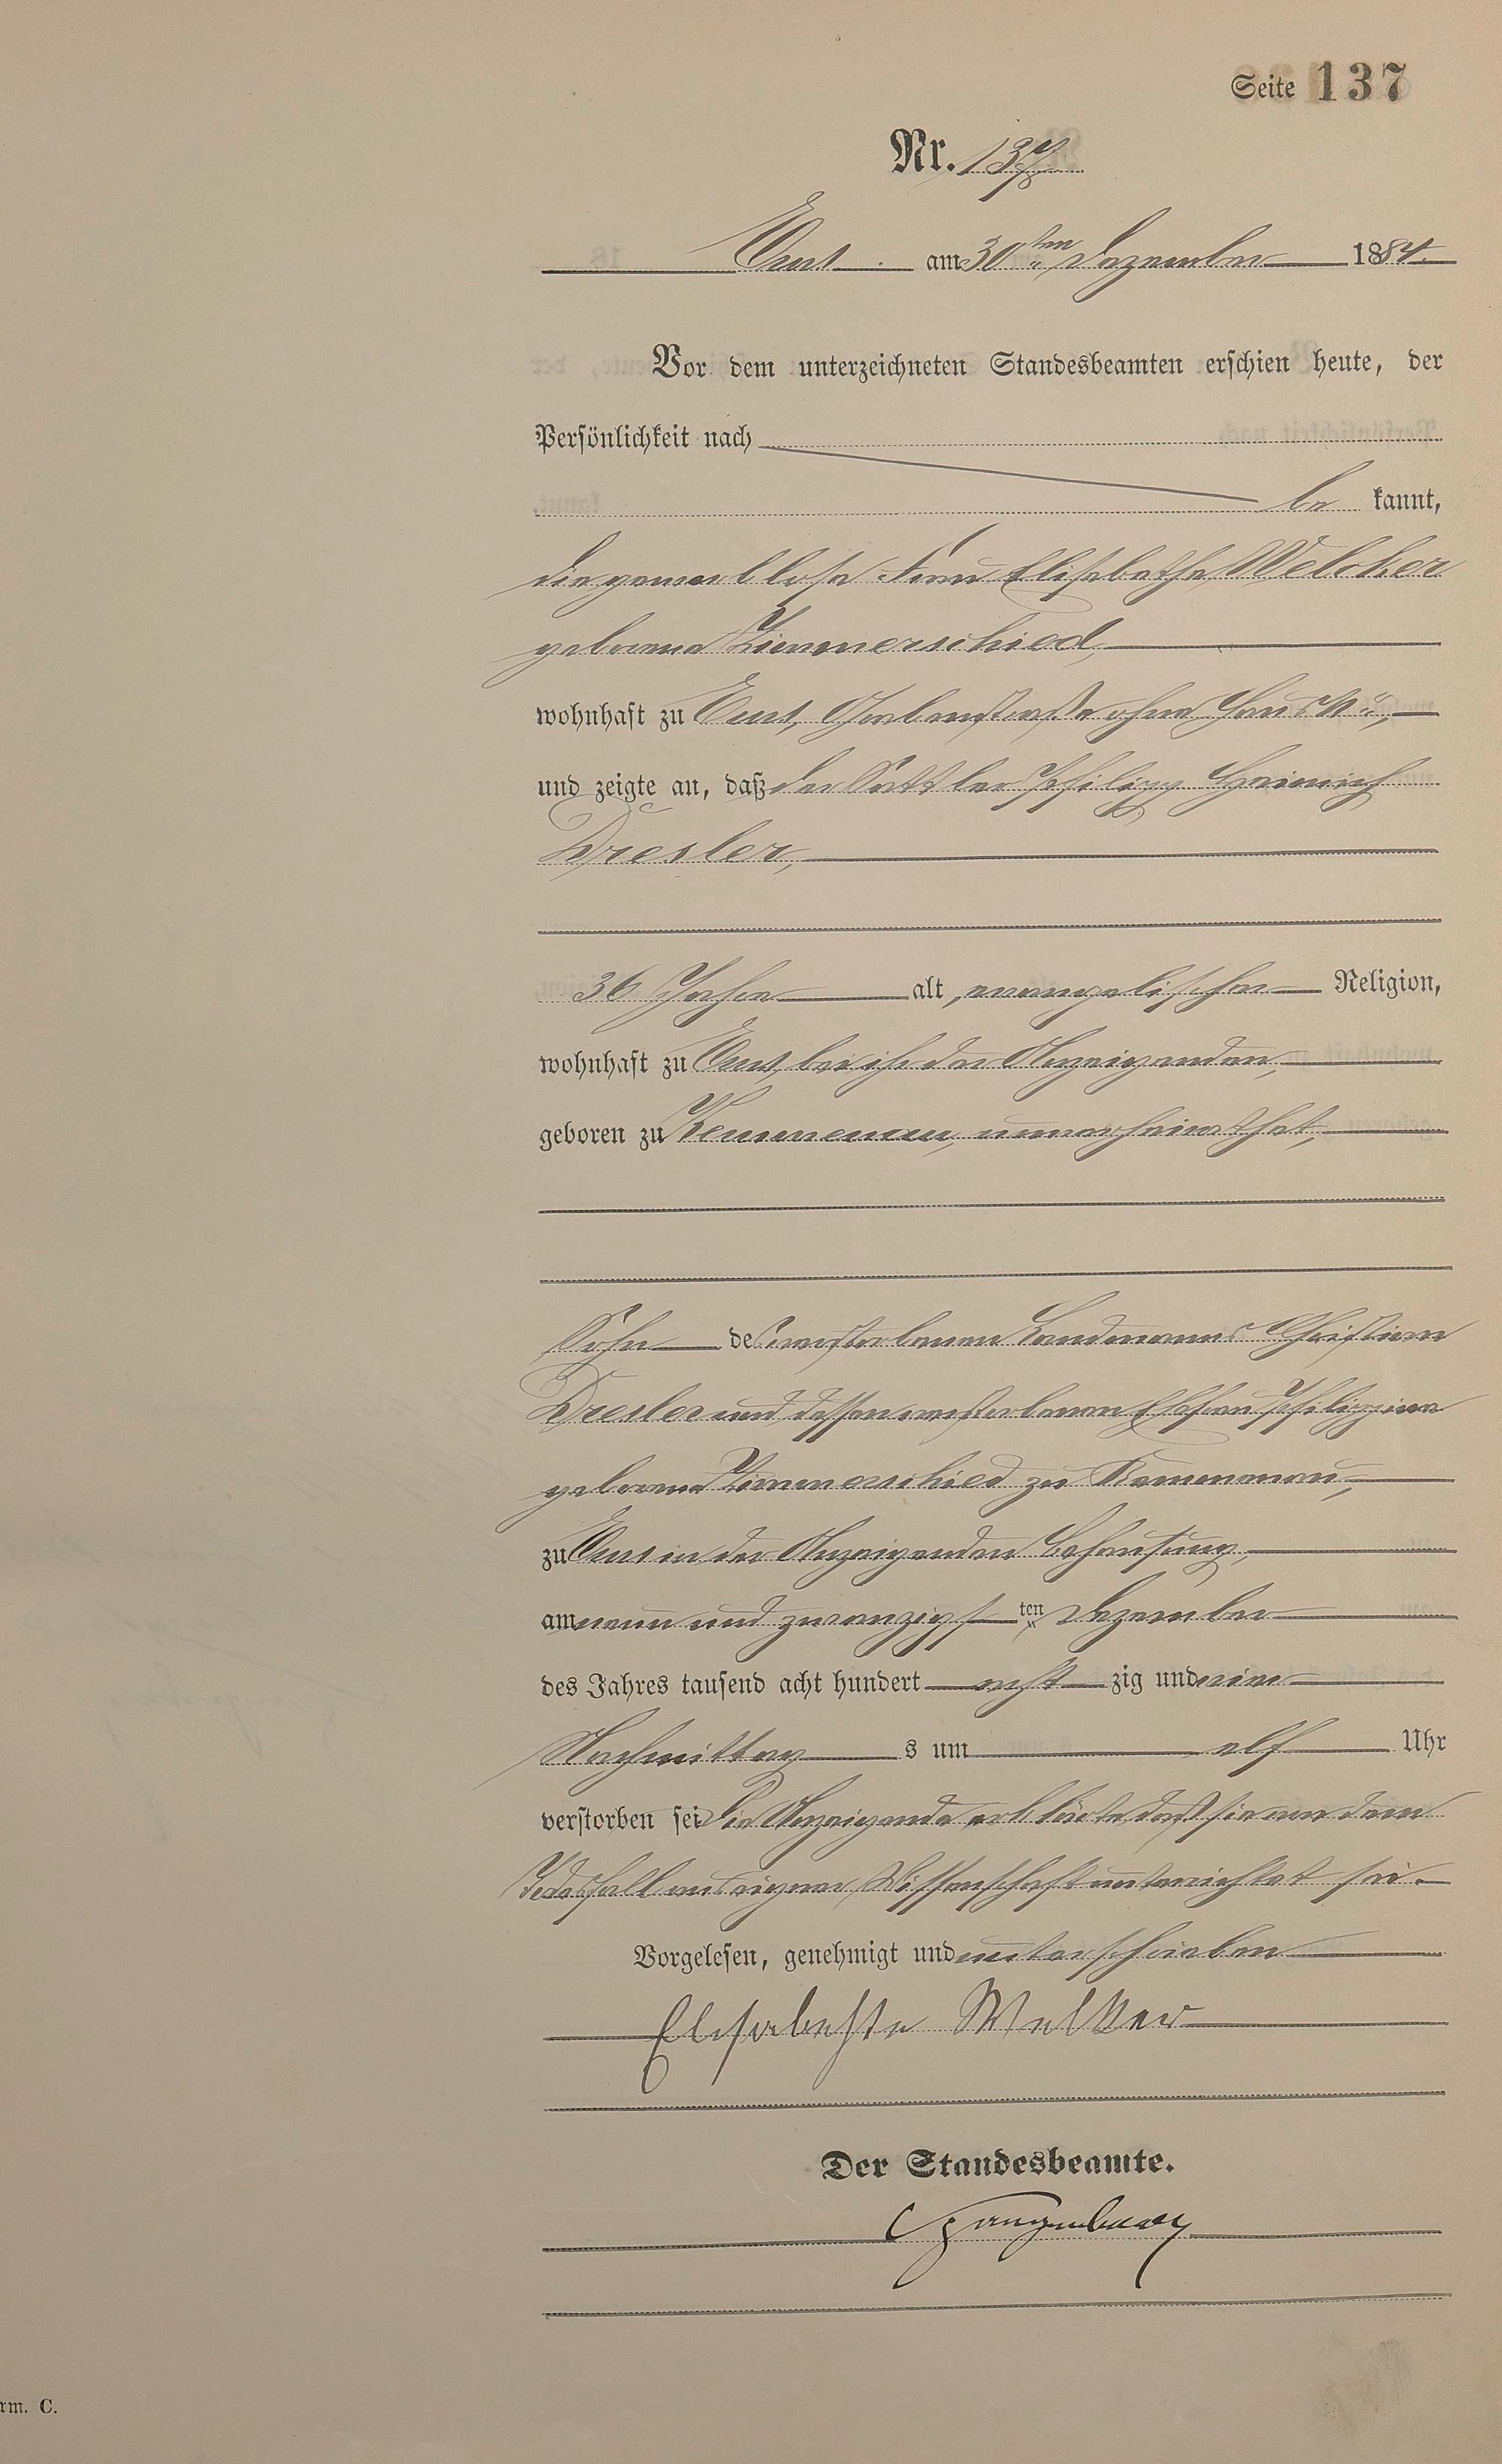 Seite 137
Nr. 137
Ems am 30ten Dezember 1884.
Vor dem unterzeichneten Standesbeamten erschien heute, der
Persönlichkeit nach
be kannt,
die gewerblose Frau Elisabetha Welcker
geborene Zimmerschied,
wohnhaft zu Ems, Grabenstraße ohne Haus No,
und zeigte an, daß der Sattler Philipp Heinrich
Dresler,
36 Jahre alt, evangelischer Religion,
wohnhaft zu Ems, bei ihr der Anzeigenden,
geboren zu Kemmenau, unverheirathet,
Sohn des verstorbenen Landmanns Christian
Dresler und dessen verstorbenen Ehefrau Philippine
geborene Zimmerschied zu Kemmenau,
zu Ems in der Anzeigenden Behausung,
am neun und zwanzigs ten Dezember
des Jahres tausend acht hundert acht zig und vier
Nachmittag s um elf Uhr
verstorben sei Die Anzeigende erklärte daß sie von dem
Todesfall aus eigener Wissenschaft unterrichtet sei.
Vorgelesen, genehmigt und unterschrieben
Elisabethe Welker
Der Standesbeamte.
rm. C.